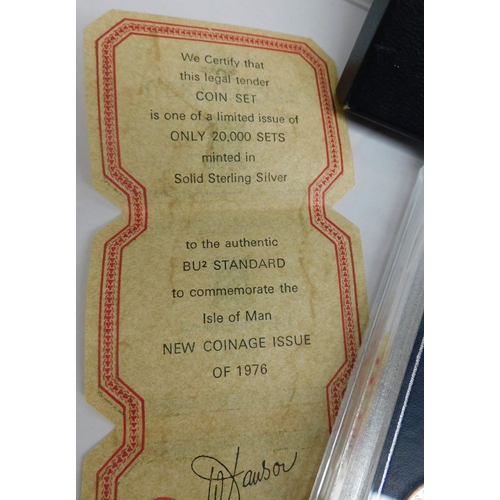 We Certify that
this legal tender
COIN SET
is one of a limited issue of
ONLY 20,000 SETS
minted in
Solid Sterling Silver
to the authentic
BU² STANDARD
to commemorate the
Isle of Man
NEW COINAGE ISSUE
OF 1976